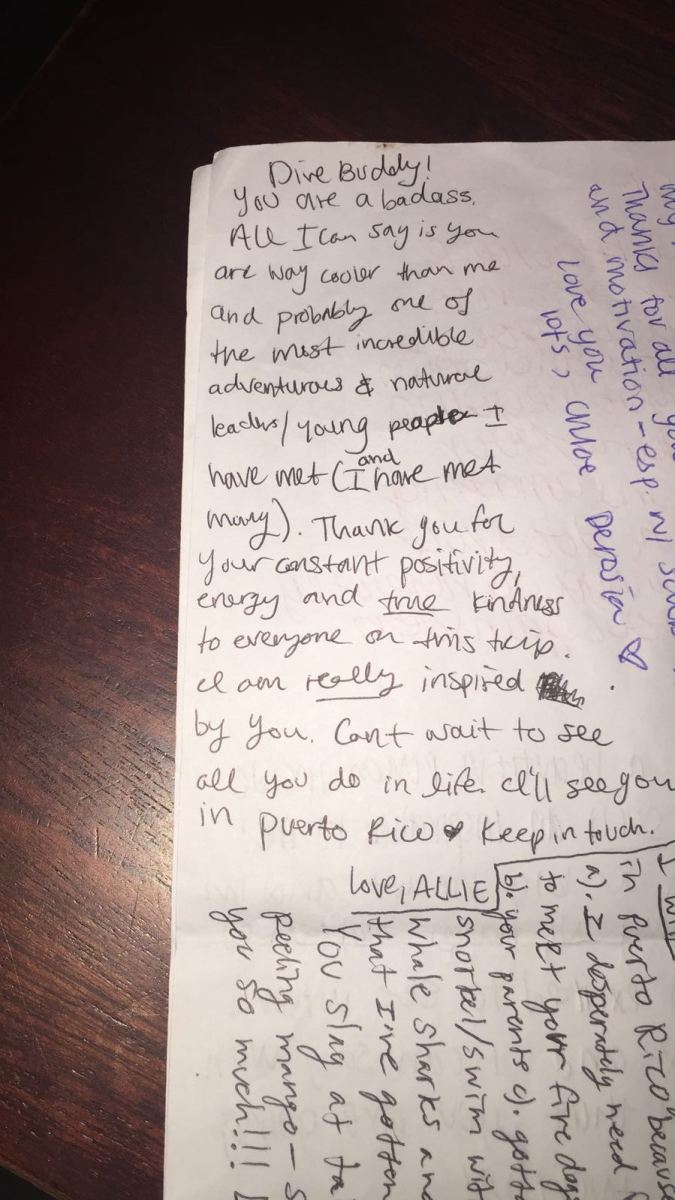 Dive Buddy!
You are a badass.
All I can say is you
are way cooler than me
and probably one of
the most incredible
adventurous & natural
leaders/young people I
have met (and I have met
many). Thank you for
your constant positivity,
energy and true kindness
to everyone on this trip.
I am really inspired
by you. Cant wait to see
all you do in life. I'll see you
in Puerto Rico ♥ Keep in touch.
Love, ALLIE
Thanks for all you
and motivation - esp. w/
love you
lots, Chloe Derosia ♡
I will
in Puerto Rico because
a). I desperately need
to meet your fire dog
b). your parents c). gott
snorkel/swim wit
whale sharks an
that I've gotten
You slay at ta
peeling mango - s
you so much!!!